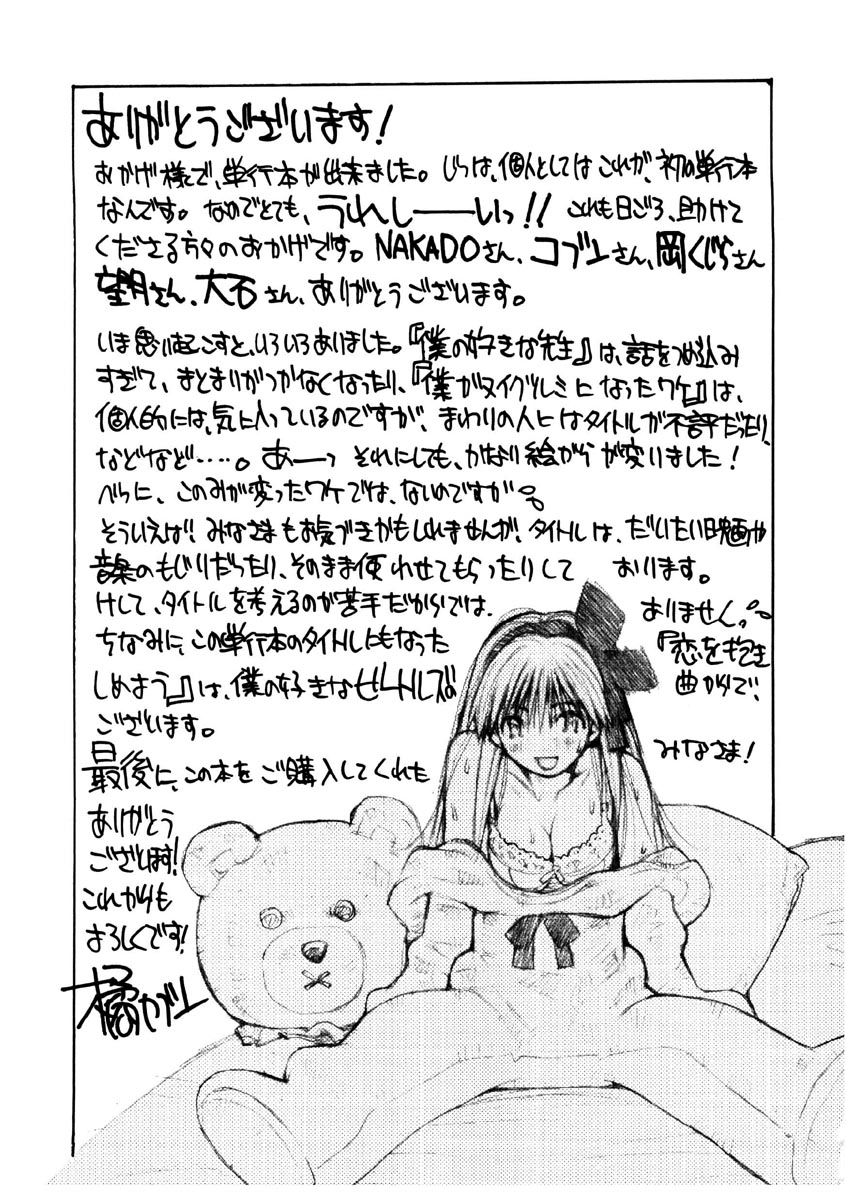 ありがとうございます!
おかげ様で、単行本が出来ました。じつは、個人としてはこれが、初の単行本
なんです。なのでとても、うれしーーいっ!!これも日ごろ、助けて
くださる方々のおかげです。NAKADOさん、コブンさん、岡くじらさん
望月さん、大石さん、ありがとうございます。
いま思い起こすと、いろいろありました。『僕の好きな先生』は、話をつめ込み
すぎて、まとまりがつかなくなったり、『僕がヌイグルミになったワケ』は、
個人的には、気に入っているのですが、まわりの人にはタイトルが不評だったり、
などなど‥‥。あーっ それにしても、かなり絵がらが変りました!
べつに、このみが変ったワケでは、ないのですが。
そういえば!みなさまもお気づきかもしれませんが、タイトルは、だいたい映画や
音楽のもじりだったり、そのまま使わせてもらったりして おります。
けして、タイトルを考えるのが苦手だからでは、 ありませんっ。
ちなみに、この単行本のタイトルにもなった 『恋を抱き
しめよう』は、僕の好きなビートルズの 曲からで、
ございます。
最後に、この本をご購入してくれた みなさま!
ありがとう
ございます!
これからも
よろしくです!